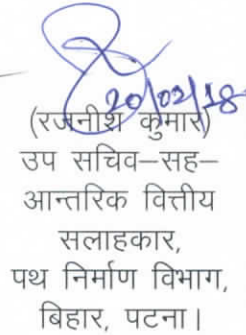 20/02/18
(रजनीश कुमार)
उप सचिव–सह–
आन्तरिक वित्तीय
सलाहकार,
पथ निर्माण विभाग,
बिहार, पटना।